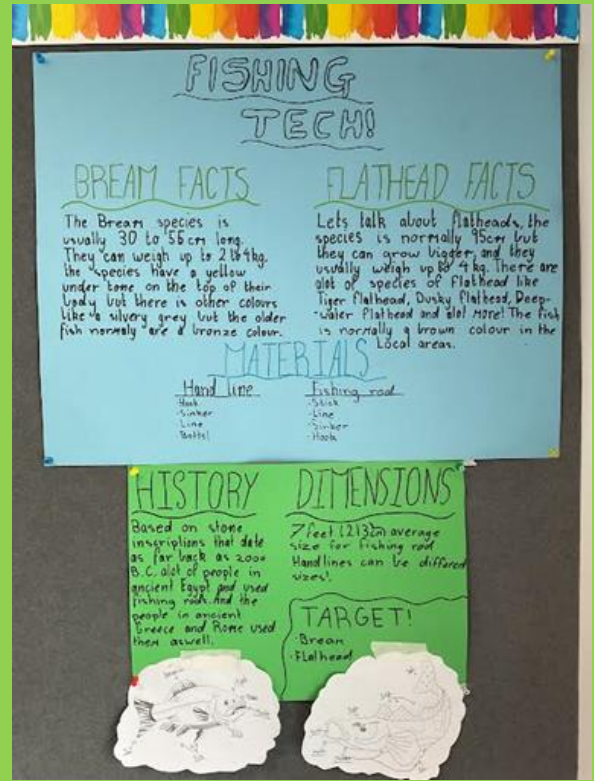 FISHING
TECH!
BREAM FACTS
The Bream species is
usually 30 to 56cm long.
They can weigh up to 2 to 4kg.
the species have a yellow
under tone on the top of their
body but there is other colours
like a silvery grey but the older
fish normaly are a bronze colour.
FLATHEAD FACTS
Lets talk about flatheads, the
species is normally 95cm but
they can grow bigger, and they
usually weigh up to 4kg. There are
alot of species of flathead like
Tiger flathead, Dusky flathead, Deep-
-water flathead and alot More! The fish
is normally a brown colour in the
Local areas.
MATERIALS
Hand line
-Hook
-Sinker
-Line
-Bottel
Fishing rod
-Stick
-Line
-Sinker
-Hook
HISTORY
Based on stone
inscriptions that date
as far back as 2000
B.C. alot of people in
ancient Egypt and used
fishing rods. And the
people in ancient
Greece and Rome used
them aswell.
DIMENSIONS
7 feet (213cm) average
size for fishing rod
Handlines can be different
sizes!
TARGET!
-Bream
-Flathead